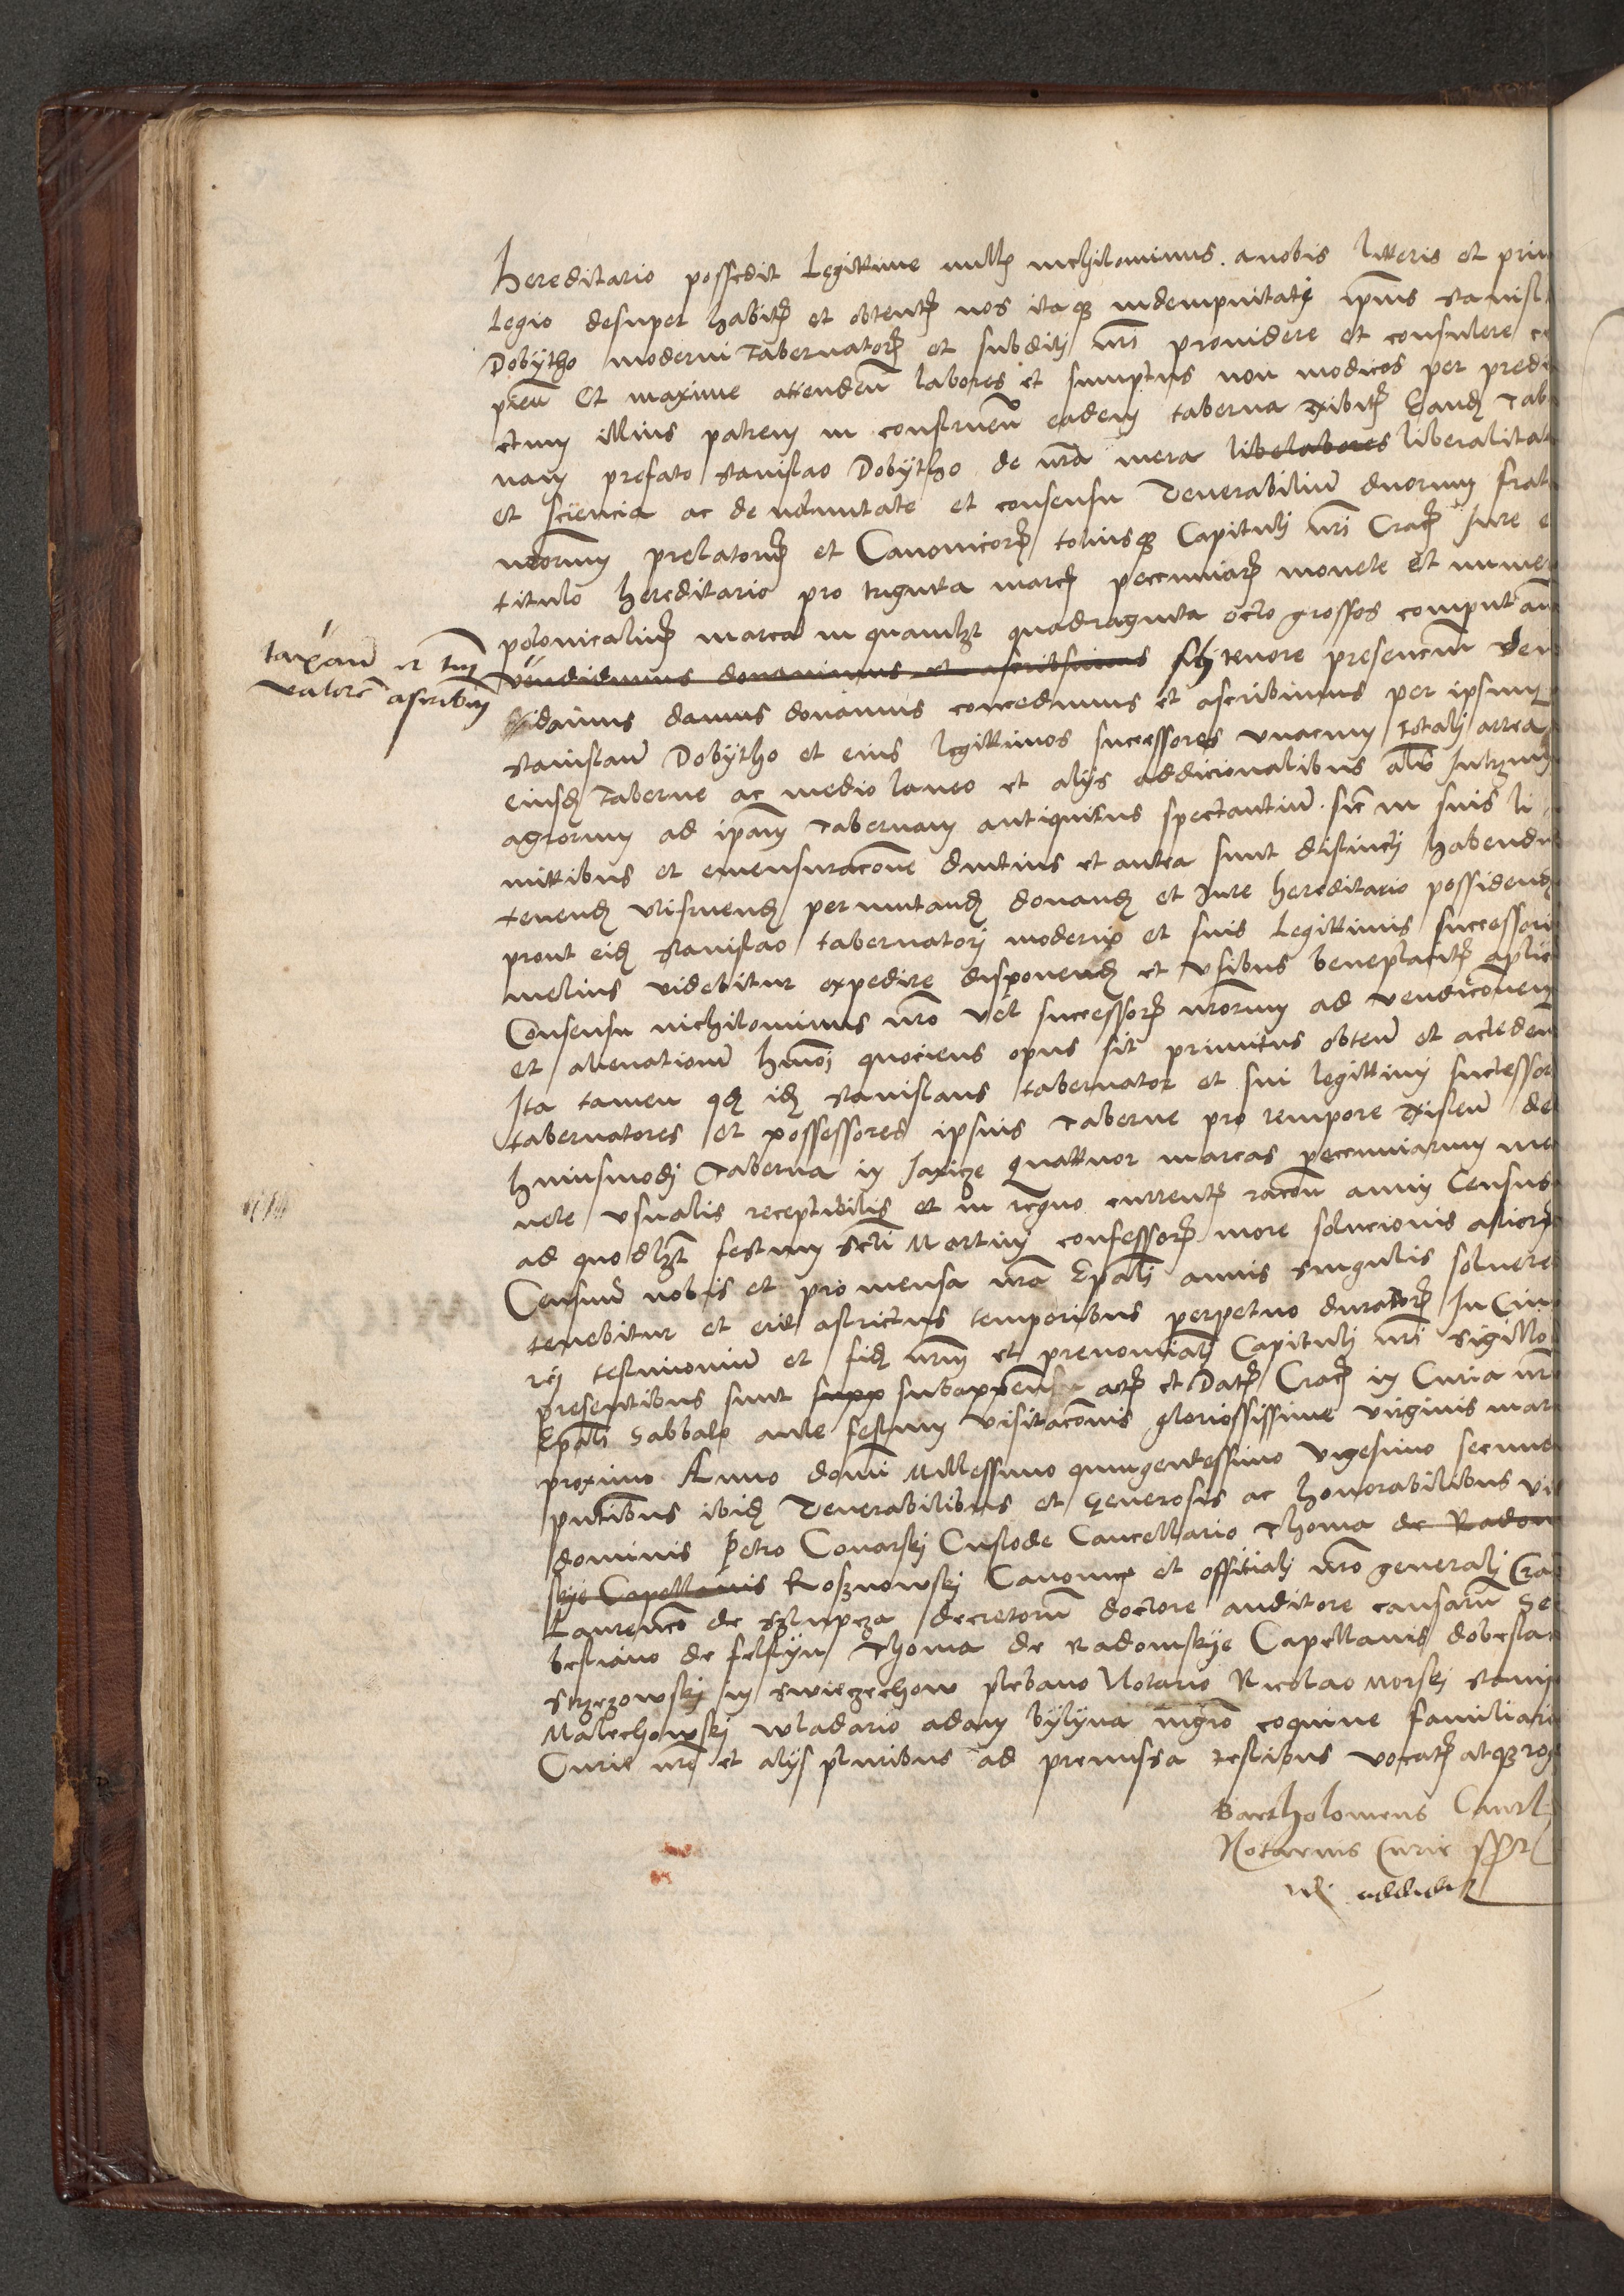 hereditario possedit legittime null nichilominus a nobis litteris et priui
legio desuper habit et obtent nos itaq indempnitati ipius Stanisl
Dobytho moderni Tabernator et subditi nri prouidere et consulere
Et maxime attenden labores et sumptus non modicos per predi
ctum illius patrem in construen eadem taberna exibit Eand Tab
nam prefato Stanislao Dobytho de nra mera libelabores liberalitat
et sciencia ac de voluntate et consensu Venerabilium duorum frat
nrorum prelatorum et Canonicor totiusq Capituli nri Crac Jure e
titulo hereditario pro triginta marc pecuniar monete et numer
polonicalium marcam in quamlzt quadraginta octo grossos computan
taxam et tm
valore ascribim
vendidimus donauimus et ascribsimus tenore presencium Ven
didimus damus donamus concedimus et ascribimus per ipsum
Stanislaum Dobytho et eius legittimos successores vnacum totali area
eiusd Taberne ac medio laneo et alys addicionalibus
agrorum ad ipam Tabernam antiquitus spectantium sic in suis li
mittibus et emensuracone diutius et antea sunt distincti habend
tenend vtifruend permutand donand et Jure hereditario possidend
prout eid Stanislao tabernatori moderno et suis legittimis successori
melius videbitur expedire disponend et vsibus beneplacit aplic
Consensu nichilominus nro vel successor nrorum ad vendiconem
et alienationem hmoi quociens opus sit primitus obten et acceden
Ita tamen qd id Stanislaus tabernator et sui legittimi successor
tabernatores et possessores ipsius Taberne pro tempore existen de
huiusmodi Taberna in Jaxicze quattuor marcas pecuniarum mo
nete vsualis receptibilis et in regno current racon annui Census
ad quodlzt festum scti Martini confessor more solucionis alior
Censuum nobis et pro mensa nra Epali annis singulis soluere
tenebitur et erit astrictus temporibus perpetuo duratur In Cuius
rei testimonium et fid nrum et prenominati Capituli nri sigillo
presentibus sunt supp subappensa act et Dat Crac in Curia nra
Epali Sabbato ante festum visitaconis gloriosissime virginis mari
proximo Anno domi Millessimo quingentessimo vigesimo secun
pntibus ibid Venerabilibus et generosis ac honorabilibus vi
dominis Petro Conarski Custode Cancellario Thoma de Radom
skye Capellanis Rosznowski Canonico et offitiali nro generali Cra
Laurenco de Szlupcza decretorum doctore auditore causarum Se
bestiano de felstyn Thoma de Radomskye Capellanis dobesla
Strzezowski in Swieczechow plebano Notario Nicolao Morski Stanis
Malechowski Wladario adam bylyna mgro coquine familiari
Curie nre et alys pluribus ad premissa testibus vocat atqz rog
Bartholomeus
Notarius Curie